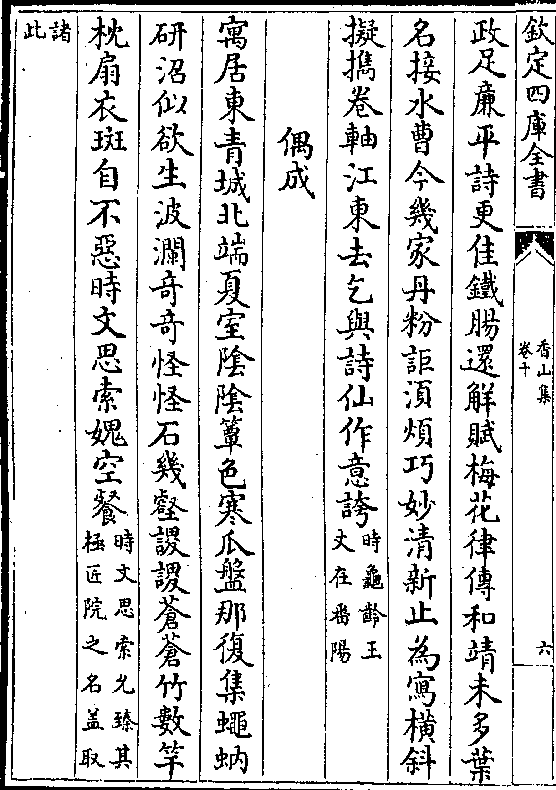 欽定四庫全書
香山集
卷十
六
政足㢘平詩更佳鐵腸還解賦梅花律傳和靖未多葉
名接水曹今幾家丹粉詎湏煩巧妙清新止為寫橫斜
擬攜卷軸江東去乞與詩仙作意誇時龜齡王
文在番陽
偶成
寓居東青城北端夏室陰陰簟色寒瓜盤那復集蠅蚋
研沼似欲生波瀾奇奇怪怪石幾壑謖謖蒼蒼竹數竿
枕扇衣斑自不惡時文思索媿空餐時文思索允臻其
極匠院之名盖取
諸
此